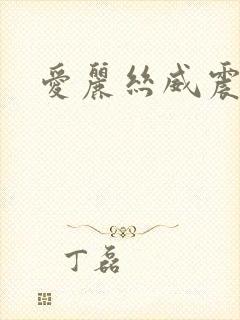 愛麗絲威震
丁磊